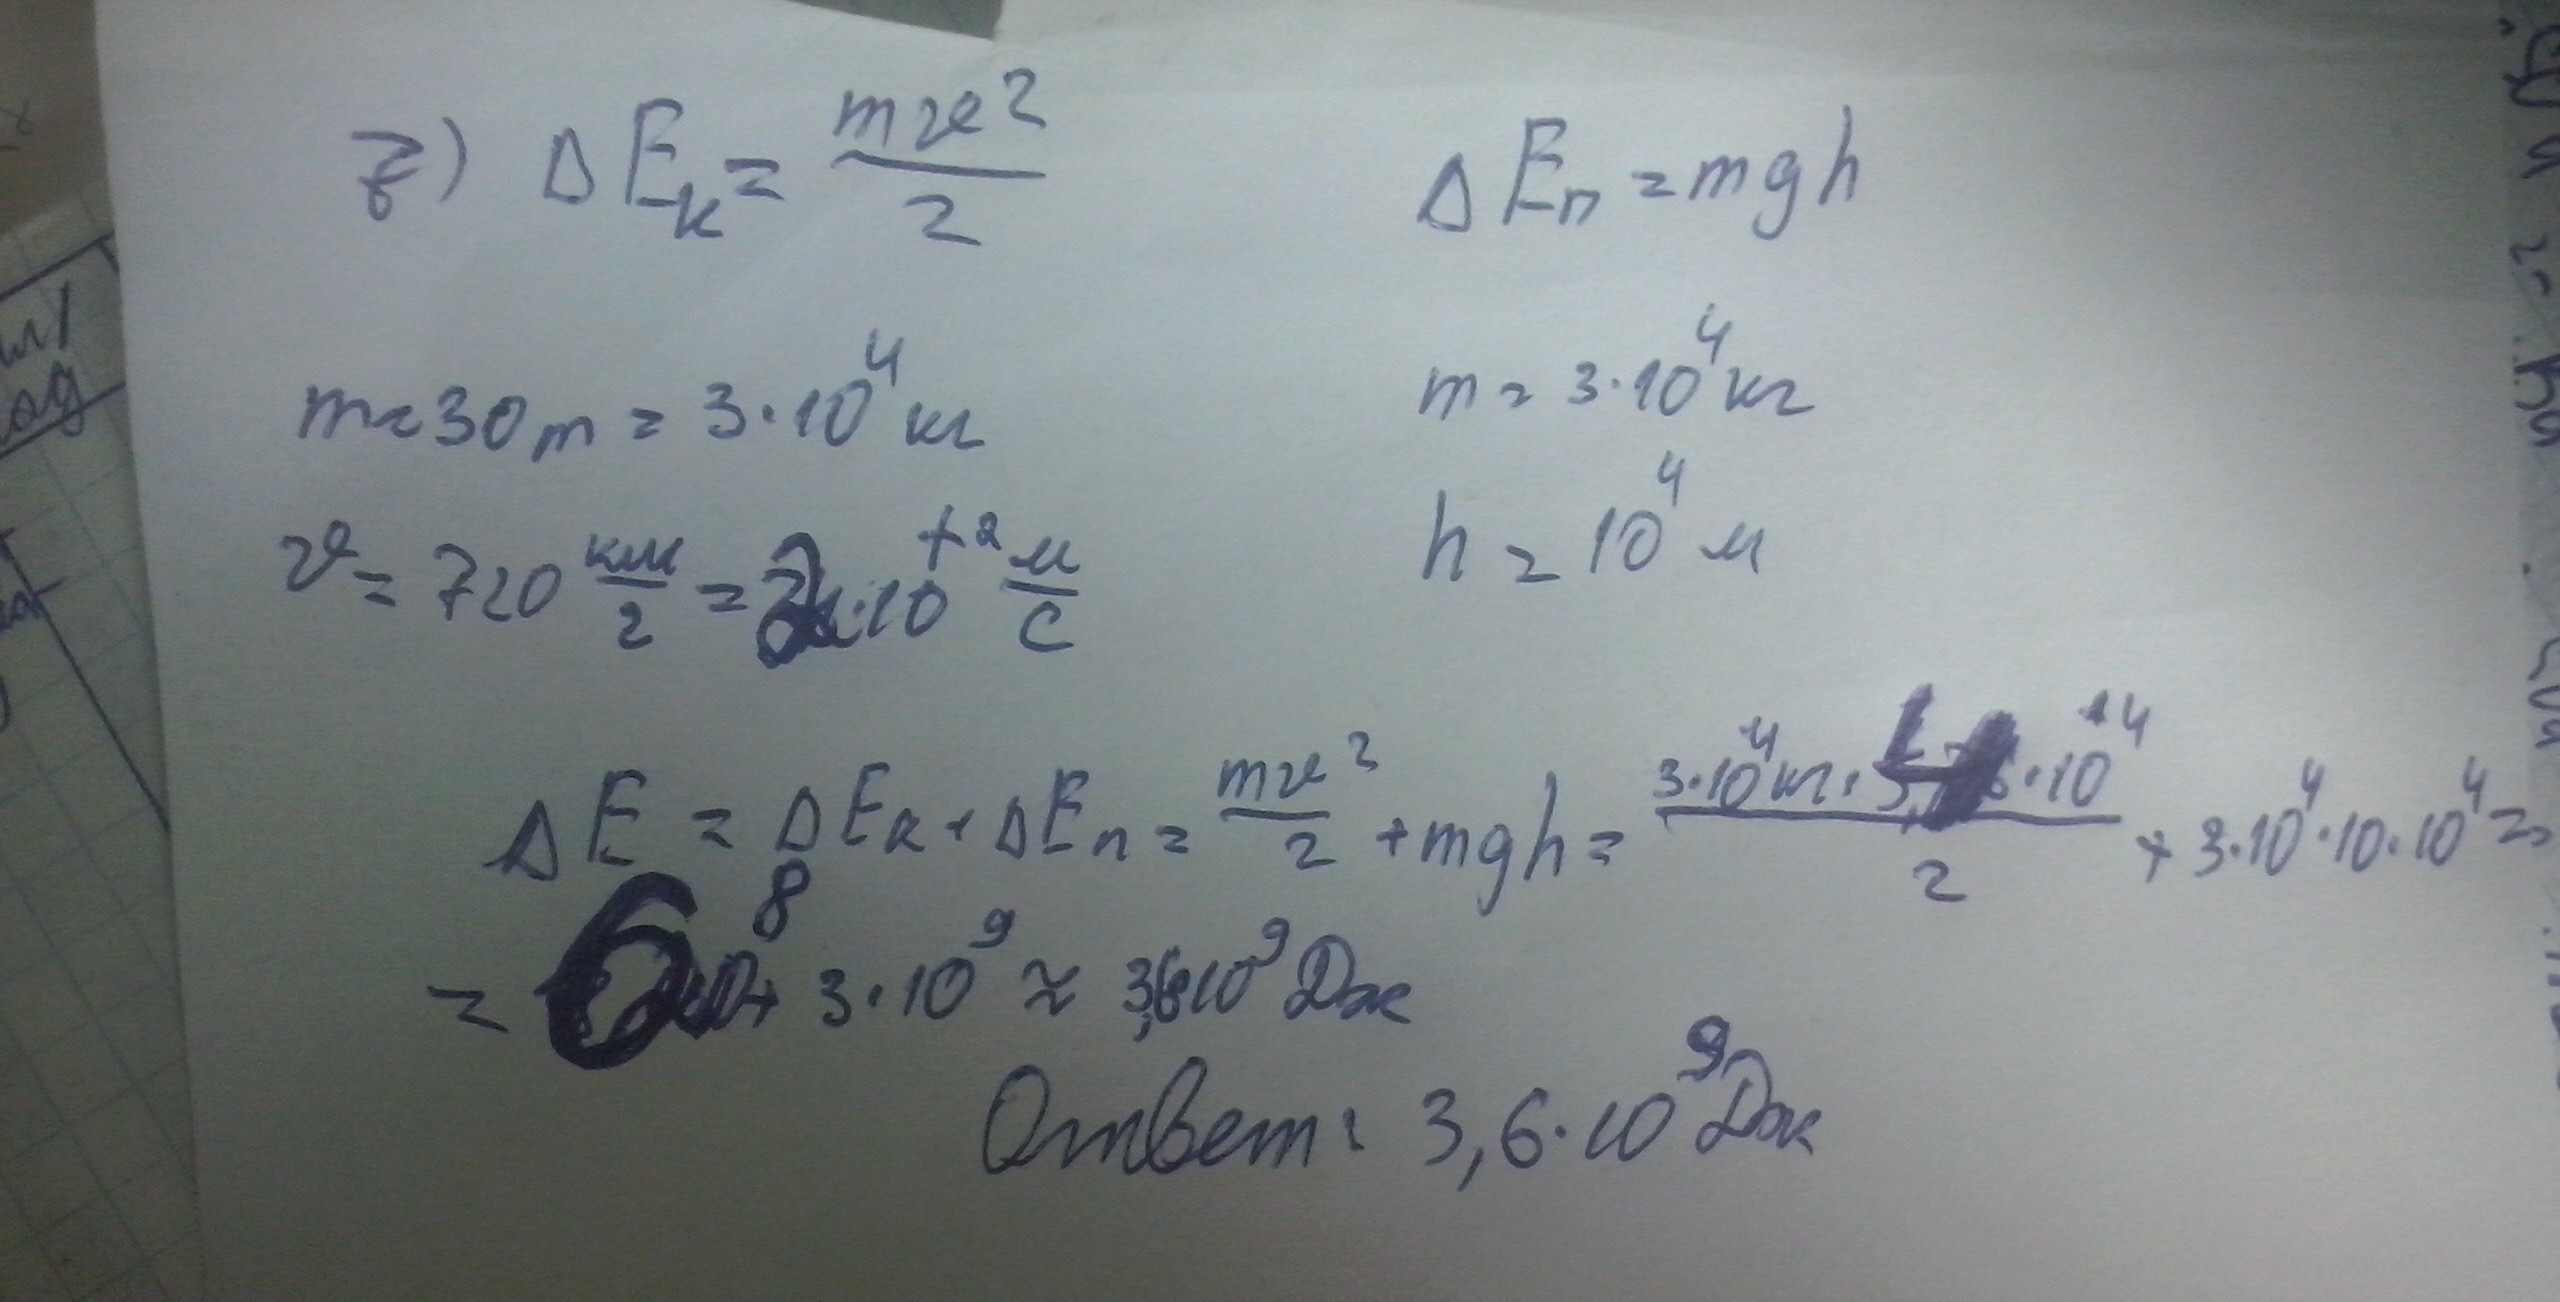 7) ΔEк = mv²/2 ΔEп = mgh
m = 30 т = 3·10⁴ кг m = 3·10⁴ кг
v = 720 км/г = 2·10⁺² м/с h = 10⁴ м
ΔE = ΔEк + ΔEп = mv²/2 + mgh = 3·10⁴ кг · 4·10⁺⁴/2 + 3·10⁴·10·10⁴ =
= 6·10⁸ + 3·10⁹ ≈ 3,6·10⁹ Дж
Ответ: 3,6·10⁹ Дж